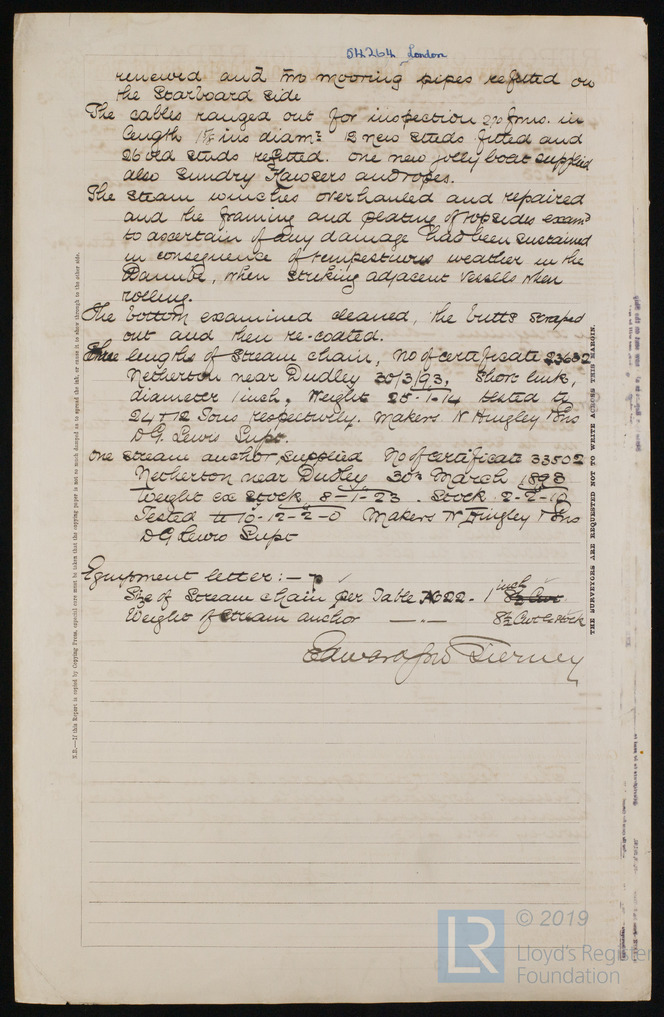 54264 London
renewed and two mooring pipes refitted on
the Starboard Side
The cables ranged out for inspection fms. in
length ins diamr 12 new studs fitted and
26 old studs refitted. One new jolly boat supplied
also Sundry Hawsers and ropes.
The steam winches overhauled and repaired
and the framing and plating of topsides examd
to ascertain if any damage had been sustained
in consequence of tempestuous weather in the
Danube, when striking adjacent vessels when
rolling.
The bottom examined cleaned, the butts scraped
out and then re-coated.
Three lengths of Stream chain, No of certificate 23632
Netherton near Dudley 30/3/93, Short link,
diameter 1 inch, Weight 25-1-14 tested to
Tons respectively. Makers N Hingley & Sons
D.G. Lewis Supt.
One stream anchor supplied No of Certificate 33502
Netherton near Dudley 30th March 1893
Weight ex Stock 8-1-23. Stock 2-2-12
Tested to 10-12-2-0 Makers N Hingley & Sons
D G Lewis Supt
Equipment letter:-
Size of Stream chain per Table 22. 1 inch
Weight of Stream anchor -"- 8½ Cwt ex stock
Tierney
N.B.—If this Report is copied by Copying Press, especial care must be taken that the copying paper is not so much damped as to spread the ink, or cause it to show through to the other side.
THE SURVEYORS ARE REQUESTED NOT TO WRITE ACROSS THIS MARGIN.
LR
© 2019
Lloyd's Register
Foundation